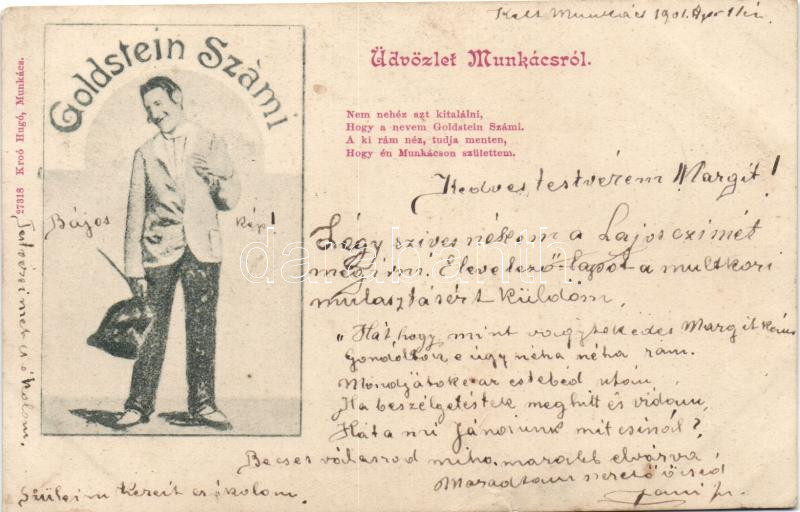 Kelt Munkács 1901. Apr 11én
Goldstein Számi
Üdvözlet Munkácsról.
Nem nehéz azt kitalálni,
Hogy a nevem Goldstein Számi.
A ki rám néz, tudja menten,
Hogy én Munkácson születtem.
27318 Kroó Hugó, Munkács.
Bájos kép!
Kedves testvérem Margit!
Légy szives nékem a Lajos czimét
megirni. Elevelező-lapot a multkori
mulasztásért küldöm.
"Hát hogy, mint vagytok kedves Margitkám
Gondoltok e úgy néha néha rám.
Mondjátok e az estebéd után,
Ha beszélgettek meghitt és vidám,
Hát a mi Jánosunk mit csinál?
Becses válaszod mihamarább elvárva
Maradtam szerető öcséd
Jani
Testvéreimet csókolom.
Szüleim kezeit csókolom.
darabanth